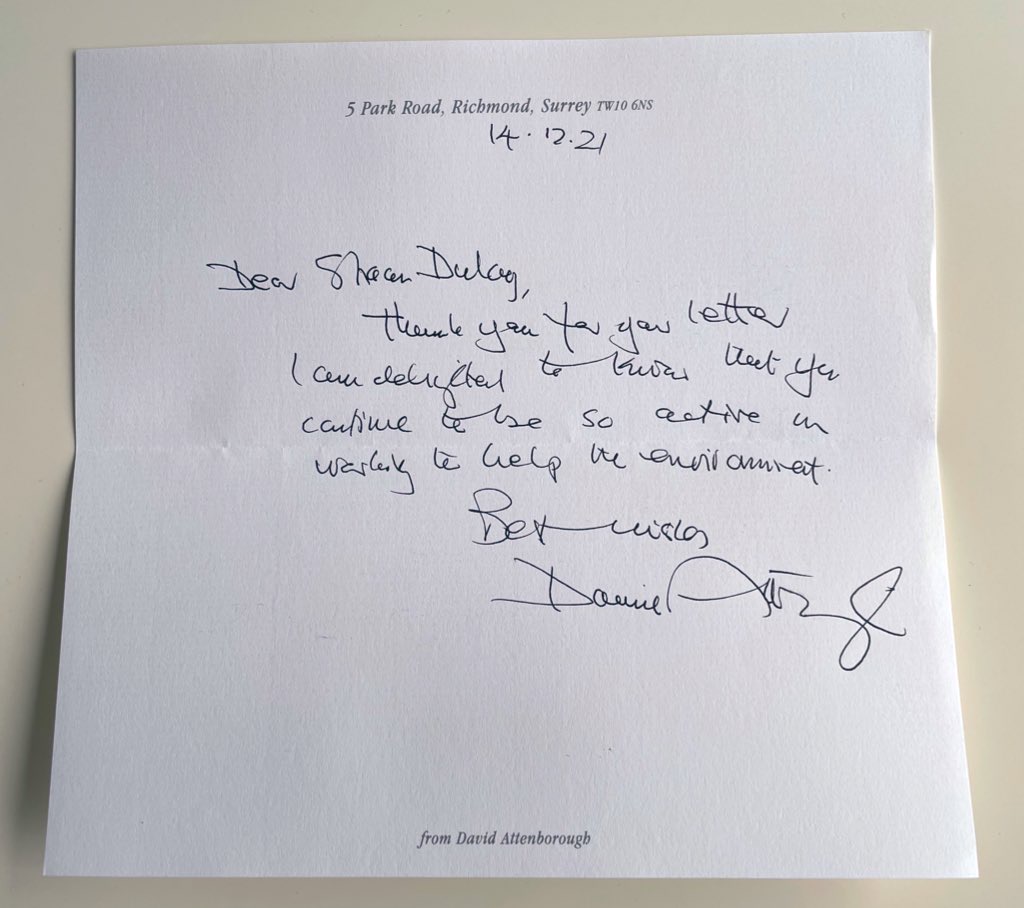 5 Park Road, Richmond, Surrey TW10 6NS
14.12.21
Dear Sheean Dulay,
Thank you for your letter
I am delighted to know that you
continue to be so active in
working to help the environment.
Best wishes
David Attenborough
from David Attenborough